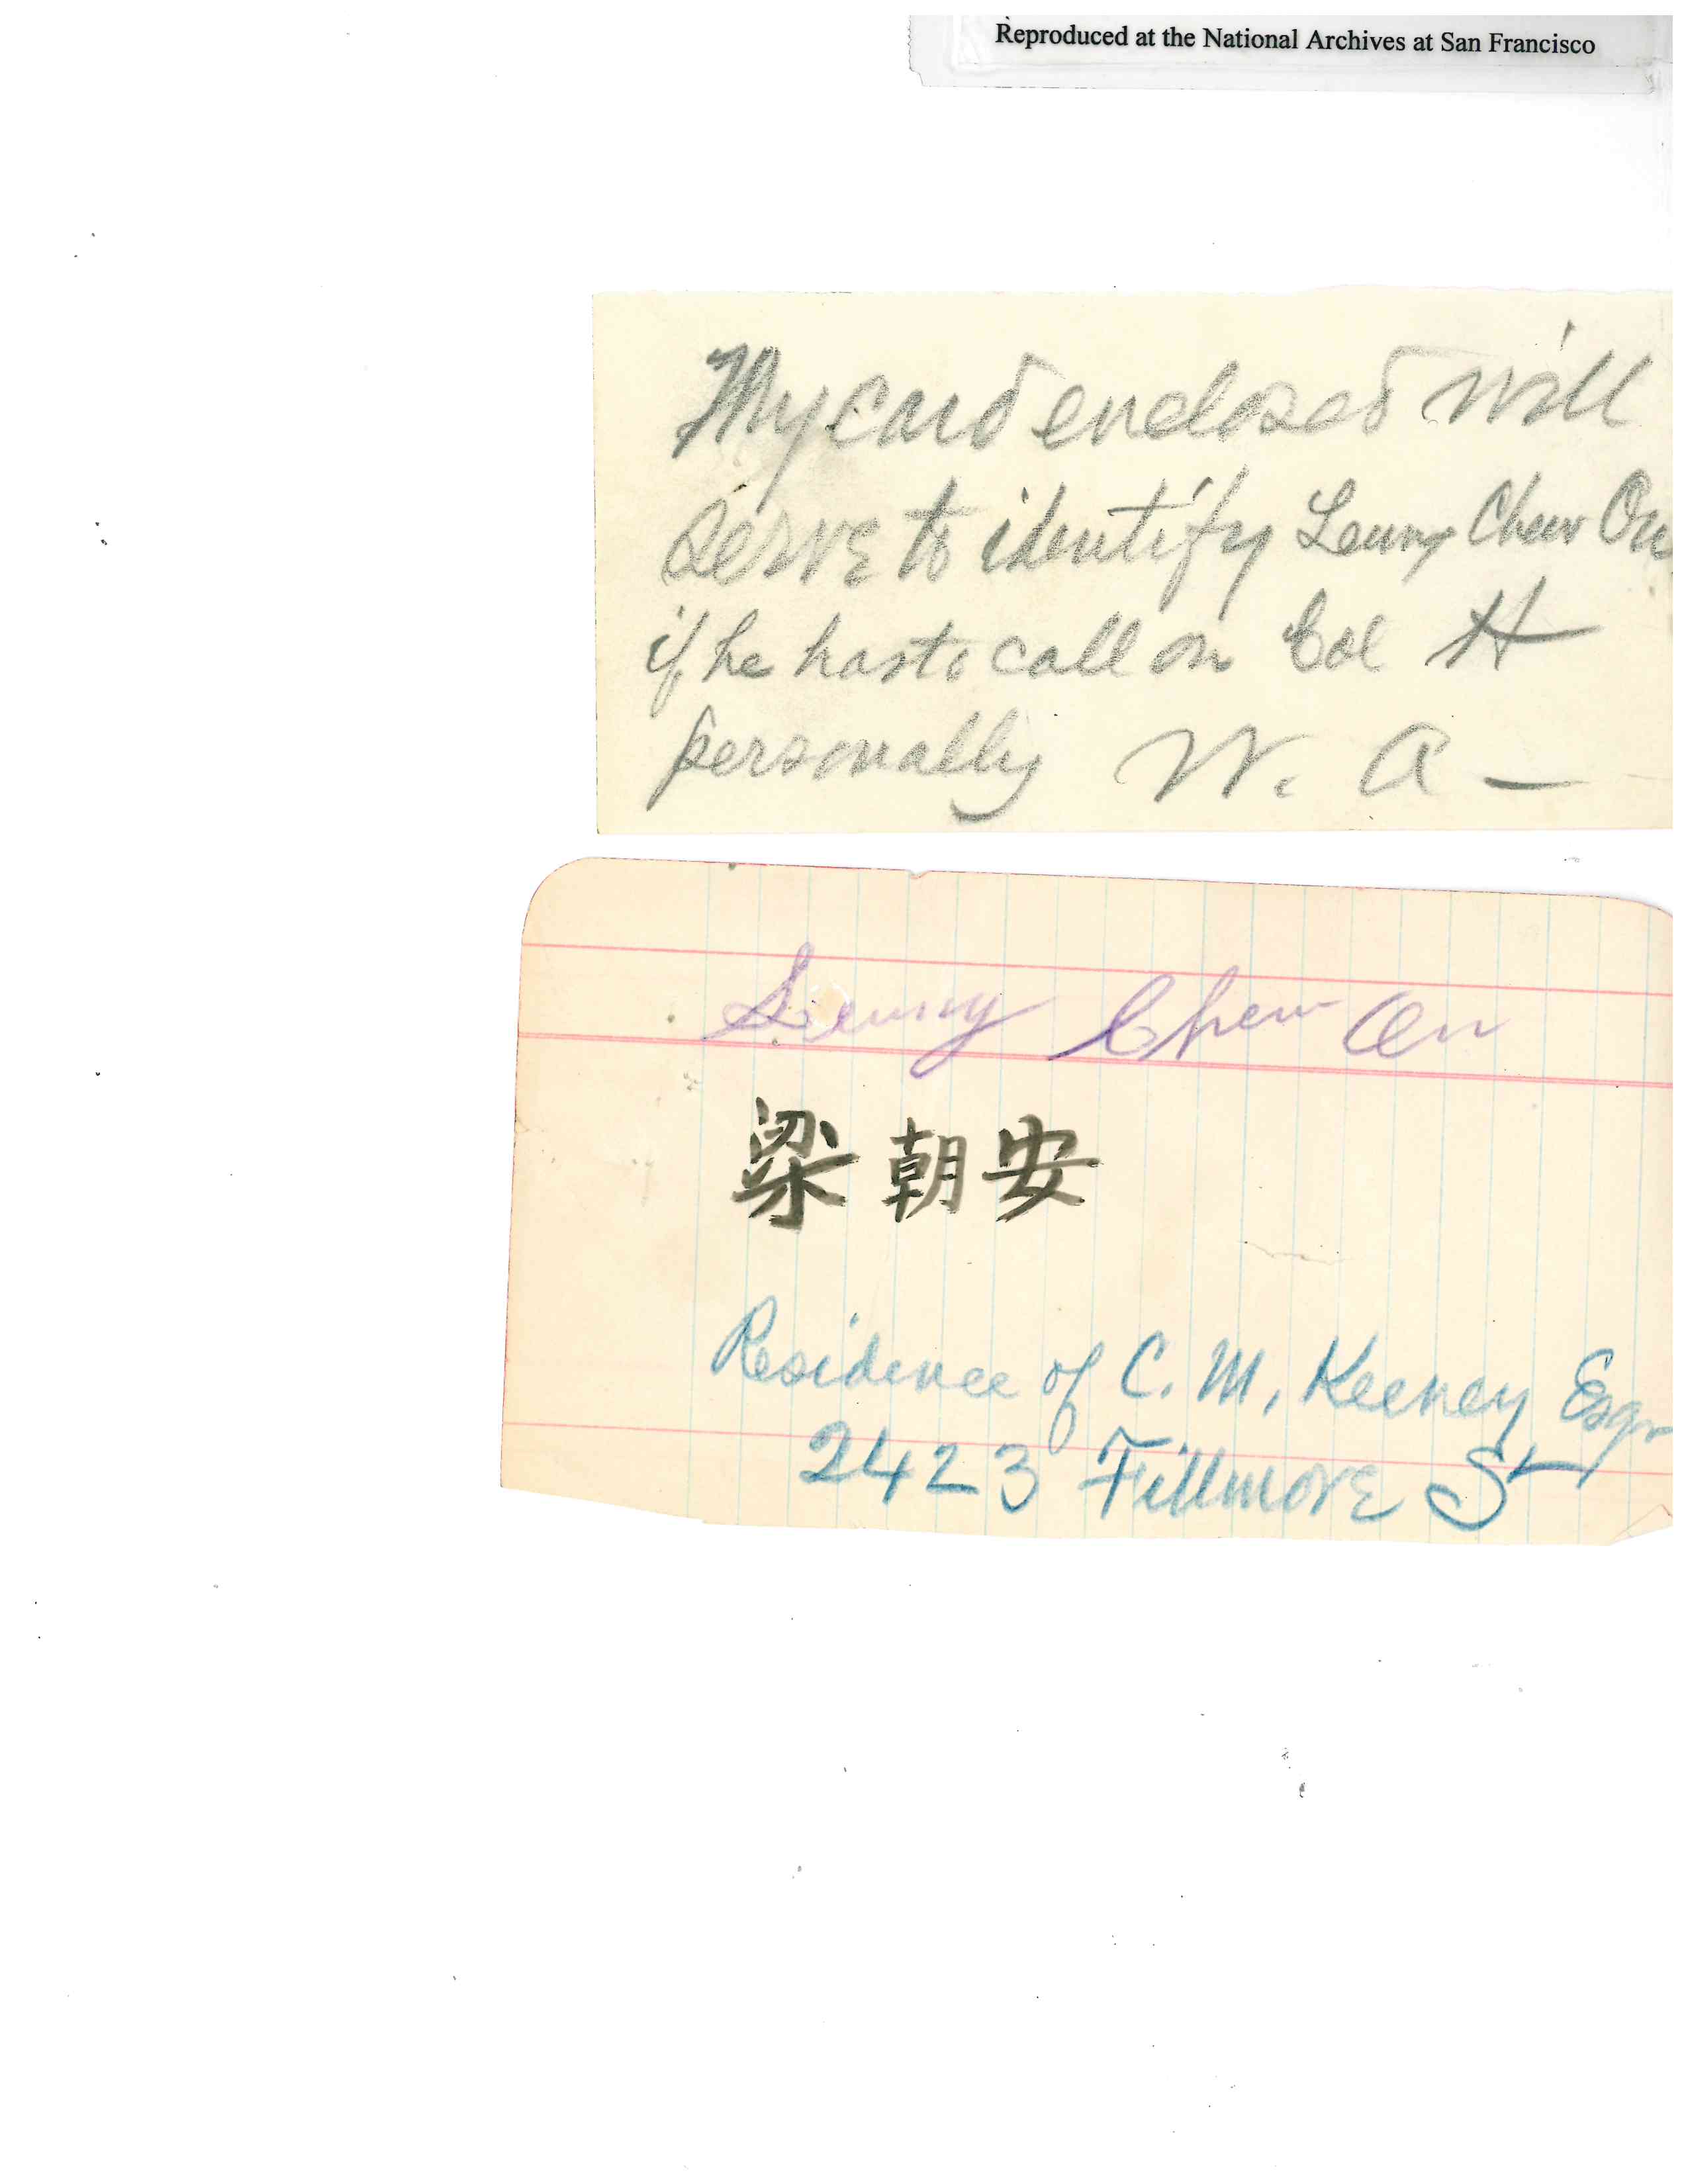 Reproduced at the National Archives at San Francisco
My card enclosed will
serve to identify Leung Chew On
if he has to call on Col H
personally W. A —
Leung Chew On
梁朝安
Residence of C. M. Keeney Esqr
2423 Fillmore St